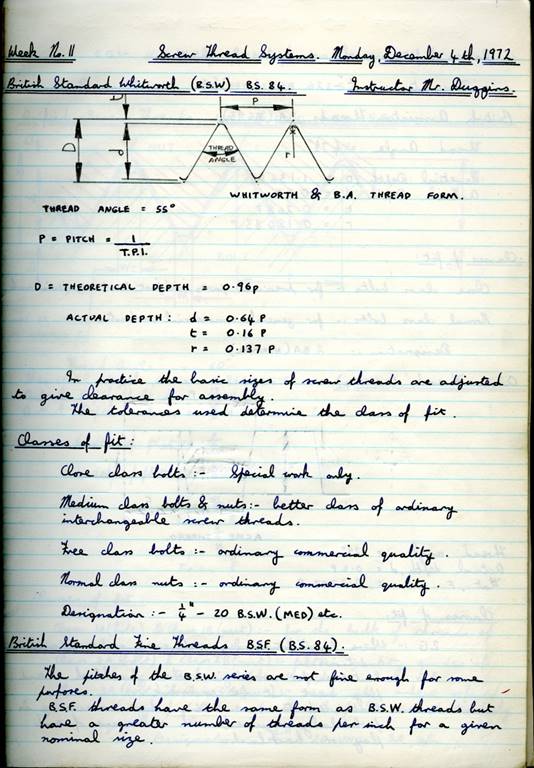 Week No. 11 Screw Thread Systems. Monday, December 4th, 1972
British Standard Whitworth (B.S.W) B.S. 84. Instructor Mr. Duggins.
t P
D d THREAD ANGLE r
WHITWORTH & B.A. THREAD FORM.
THREAD ANGLE = 55°
P = PITCH = 1
T.P.I.
D = THEORETICAL DEPTH = 0.96p
ACTUAL DEPTH: d = 0.64 P
t = 0.16 P
r = 0.137 P
In practice the basic sizes of screw threads are adjusted
to give clearance for assembly.
The tolerances used determine the class of fit.
Classes of fit:
Close class bolts :- Special work only.
Medium class bolts & nuts:- better class of ordinary
interchangeable screw threads.
Free class bolts :- ordinary commercial quality.
Normal class nuts :- ordinary commercial quality.
Designation :- 1/4" - 20 B.S.W. (MED) etc.
British Standard Fine Threads B.S.F. (B.S. 84).
The pitches of the B.S.W. series are not fine enough for some
purposes.
B.S.F. threads have the same form as B.S.W. threads but
have a greater number of threads per inch for a given
nominal size.